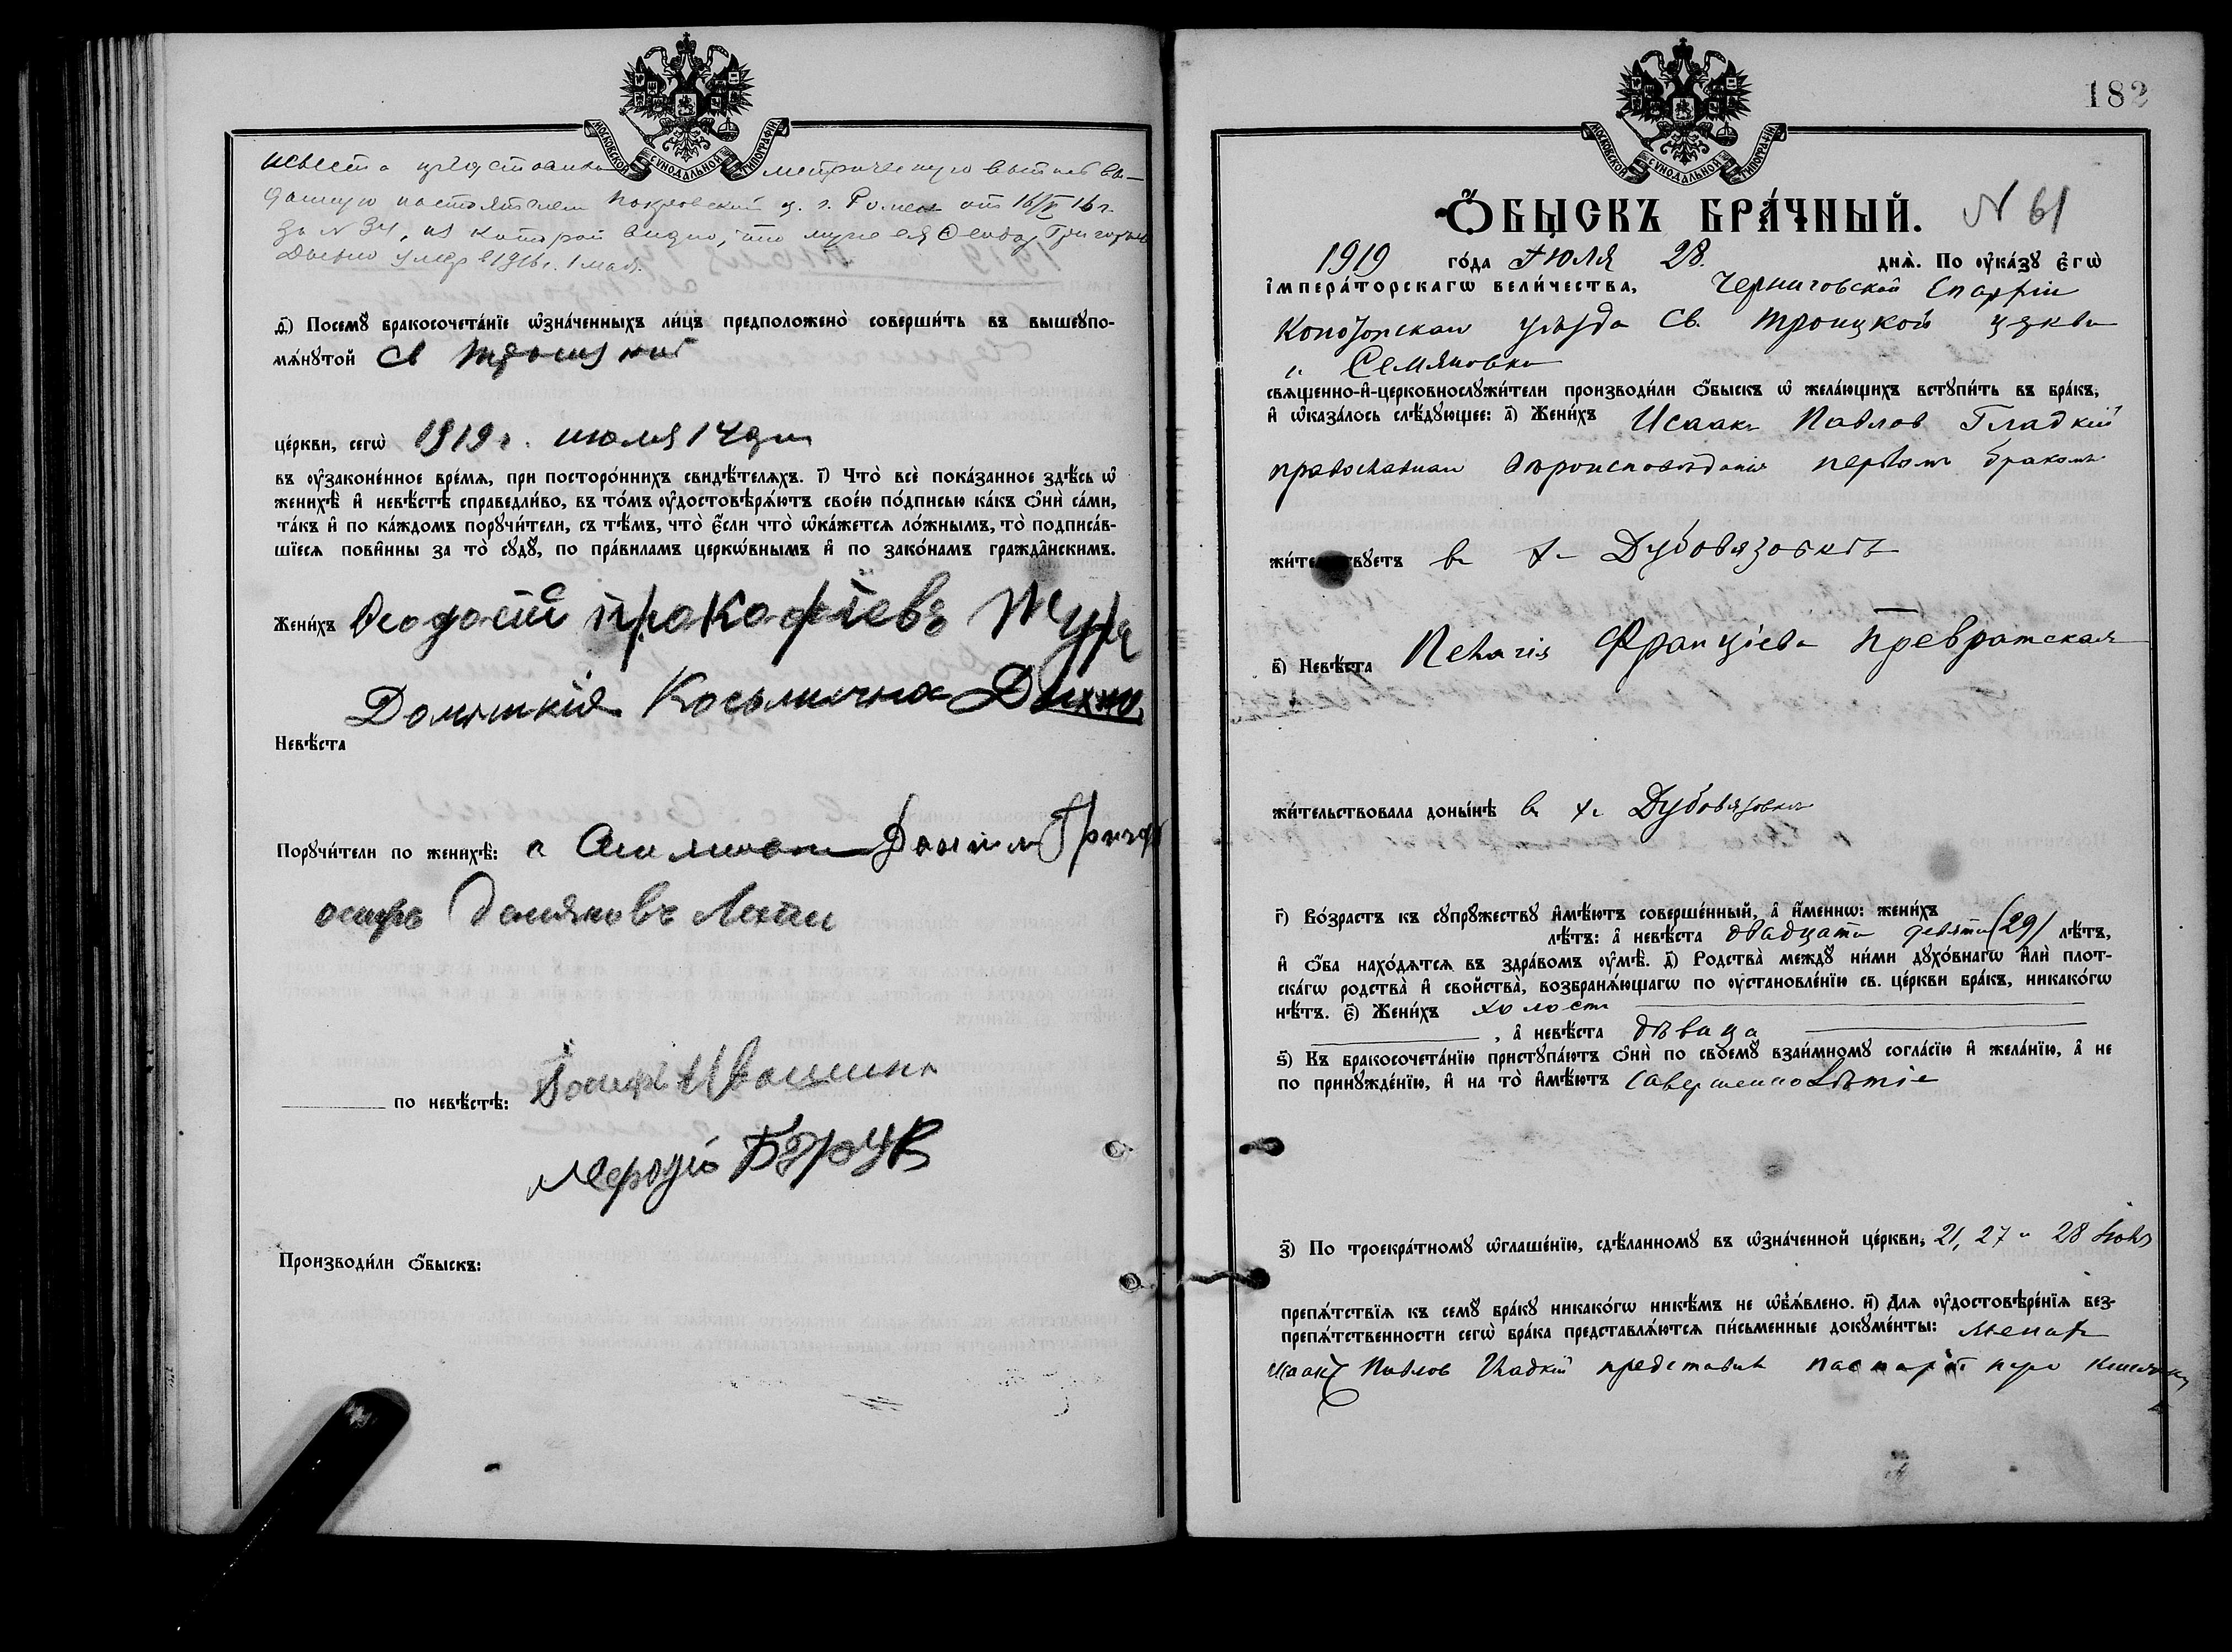 МОСКОВСКОЙ СѴНОДАЛЬНОЙ ТИПОГРАФІИ
невеста представила метрическую выпись вы-
данную настоятелем Покровской ц. г. Ромен от 16/V 16 г.
за N 34, из которой видно, что муж ея Григорьев
умер 1916 г. 1 мая.
д҃і) Посемꙋ̀ бракосочета́нїе ѡ҆зна́ченныхъ ли́цъ предположено̀ соверши́ть въ вышеꙋпо-
мѧ́нꙋтой св Троицкой
це́ркви, сегѡ̀ 1919 г. июля 14 дня
въ ᲂу҆законе́нное вре́мѧ, при посторо́ннихъ свидѣ́телѧхъ. і҃) Что̀ всѐ пока́занное здѣ́сь ѡ҆
женихѣ̀ и҆ невѣ́стѣ справедли́во, въ то́мъ ᲂу҆достовѣрѧ́ютъ свое́ю по́дписью ка́къ ѻ҆нѝ са́ми,
та́къ и҆ по ка́ждомъ порꙋчи́тели, съ тѣ́мъ, что̀ є҆́сли что̀ ѡ҆ка́жетсѧ ло́жнымъ, то̀ подписа́в-
шїесѧ пови́нны за то̀ сꙋдꙋ̀, по пра́виламъ церко́внымъ и҆ по зако́намъ гражда́нскимъ.
Жени́хъ Феодосий Прокофіевъ Жура
Домникія Косьминична Дихно
Невѣ́ста
Порꙋчи́тели по женихѣ̀:
осипъ Демяновъ
по невѣ́стѣ:
Производи́ли ѻ҆́быскъ:
182
МОСКОВСКОЙ СѴНОДАЛЬНОЙ ТИПОГРАФІИ
Ѻ҆́БЫСКЪ БРА́ЧНЫЙ. N 61
1919 го́да Июля 28. днѧ̀. По ᲂу҆ка́зꙋ є҆гѡ̀
і҆мпера́торскагѡ вели́чества, Черниговской Епархіи
Конотопскаго уѣзда Св. Троицкой церкви
с. Семяновки
свѧщенно-и҆-церковнослꙋжи́тели производи́ли ѻ҆́быскъ ѡ҆ жела́ющихъ встꙋпи́ть въ бра́къ,
и҆ ѡ҆каза́лось слѣ́дꙋющее: а҃) Жени́хъ Исаакъ Павлов Гладкій
православнаго вѣроисповѣданія первымъ бракомъ
жи́тельствꙋетъ въ х. Дубовязовкѣ
в҃) Невѣ́ста Пелагія Францїева Превратская
жи́тельствовала доны́нѣ въ х. Дубовязовкѣ
г҃) Во́зрастъ къ сꙋпрꙋ́жествꙋ и҆мѣ́ютъ соверше́нный, а҆ и҆́меннѡ: жени́хъ
лѣ́тъ: а҆ невѣ́ста двадцати девяти (29) лѣ́тъ,
и҆ ѻ҆́ба нахо́дѧтсѧ въ здра́вомъ ᲂу҆мѣ̀. д҃) Родства̀ междꙋ̀ ни́ми дꙋхо́внагѡ и҆лѝ плот-
ска́гѡ родства̀ и҆ свойства̀, возбранѧ́ющагѡ по ᲂу҆становле́нїю св. це́ркви бра́къ, никако́гѡ
нѣ́тъ. є҃) Жени́хъ холост
, а҆ невѣ́ста дѣвица
ѕ҃) Къ бракосочета́нїю пристꙋпа́ютъ ѻ҆нѝ по своемꙋ̀ взаи́мномꙋ согла́сїю и҆ жела́нїю, а҆ не
по принꙋжде́нїю, и҆ на то̀ и҆мѣ́ютъ совершеннолѣтіе
з҃) По троекра́тномꙋ ѡ҆глаше́нїю, сдѣ́ланномꙋ въ ѡ҆зна́ченной це́ркви, 21, 27 и 28 Іюля
препѧ́тствїѧ къ семꙋ̀ бра́кꙋ никако́гѡ никѣ́мъ не ѡ҆б̾ѧ́влено. и҃) Длѧ ᲂу҆достовѣре́нїѧ без-
препѧ́тственности сегѡ̀ бра́ка представлѧ́ютсѧ пи́сьменные докꙋме́нты: Жених
Исаакъ Павлов Гладкій представил паспорт